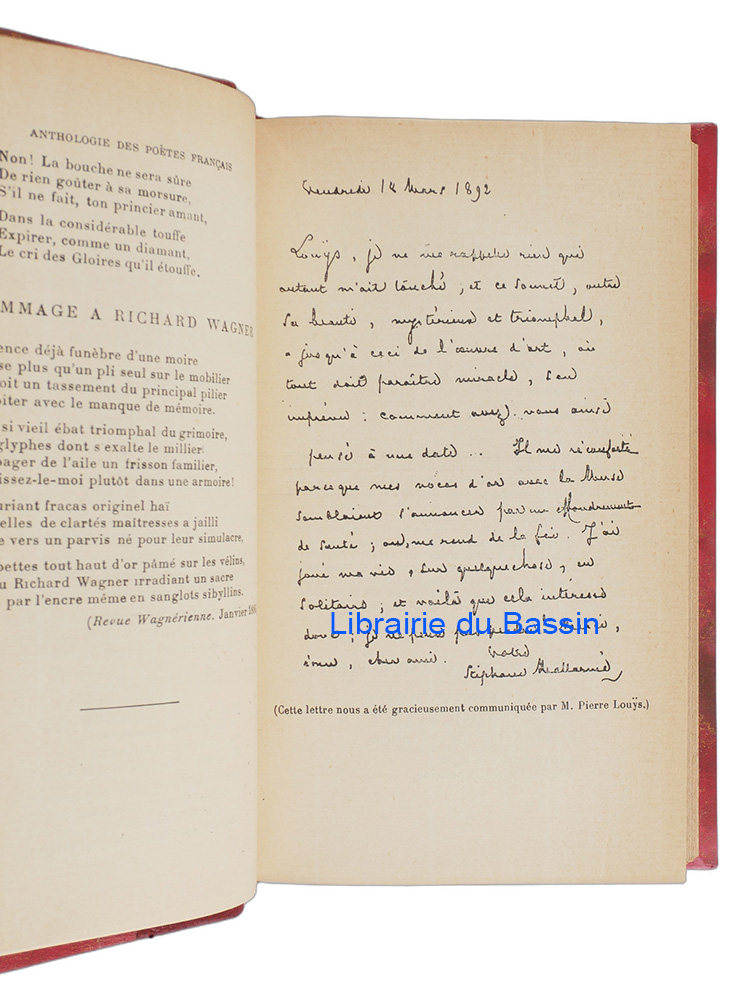 ANTHOLOGIE DES POÈTES FRANÇAIS
Non! La bouche ne sera sûre
De rien goûter à sa morsure,
S'il ne fait, ton princier amant,
Dans la considérable touffe
Expirer, comme un diamant,
Le cri des Gloires qu'il étouffe.
MMAGE A RICHARD WAGNER
ence déjà funèbre d'une moire
se plus qu'un pli seul sur le mobilier
oit un tassement du principal pilier
iter avec le manque de mémoire.
si vieil ébat triomphal du grimoire,
glyphes dont s exalte le millier
pager de l'aile un frisson familier,
issez-le-moi plutôt dans une armoire!
uriant fracas originel haï
elles de clartés maîtresses a jailli
e vers un parvis né pour leur simulacre,
pettes tout haut d'or pâmé sur les vélins,
u Richard Wagner irradiant un sacre
par l'encre même en sanglots sibyllins.
(Revue Wagnérienne. Janvier
Vendredi 18 Mars 1892
Louÿs, je ne me rappelle rien qui
autant m'ait touché, et ce sonnet, outre
sa beauté, mystérieux et triomphal,
a jusqu'à ceci de l'œuvre d'art, où
tout doit paraître miracle, l'en
imprévu : comment avez-vous ainsi
pensé à une date .. Il me réconforte
parceque mes noces d'or avec la Muse
semblaient s'annoncer par un effondrement
de santé ; ou, me rend de la foi. J'ai
joué ma vie, sur quelquechose, en
solitaire ; et voilà que cela intéresse
donc ; je ne puis pas
ému, cher ami. Votre
Stéphane Mallarmé
Librairie du Bassin
(Cette lettre nous a été gracieusement communiquée par M. Pierre Louÿs.)